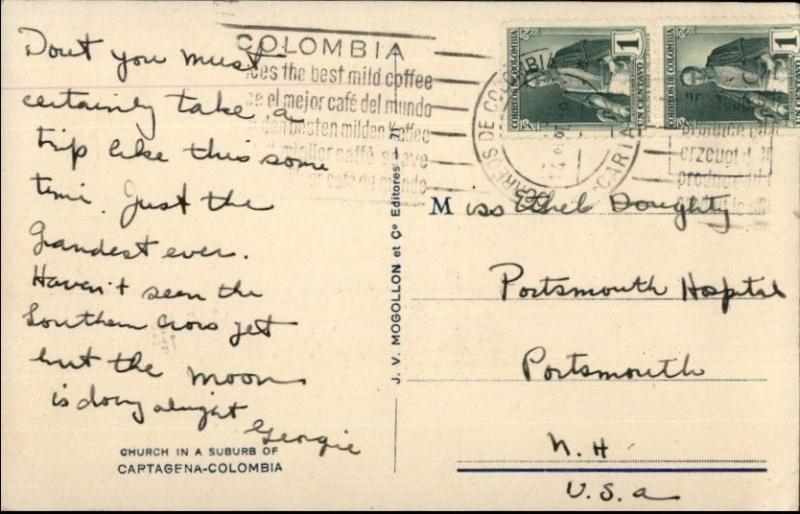 Dout you must
certainly take a
trip like this some
time. Just the
Grandest ever.
Haven't seen the
Southern Cross yet
but the moon
is doing alright
Georgie
CHURCH IN A SUBURB OF
CARTAGENA-COLOMBIA
J. V. MOGOLLON et Co Editores
COLOMBIA
the best mild coffee
el mejor café del mundo
besten milden Kaffee
CORREOS DE COLOMBIA
1
UN CENTAVO
CORREOS DE COLOMBIA
1
UN CENTAVO
produce
erzeugt
produce
Miss Ethel Doughty
Portsmouth Hospital
Portsmouth
N. H
U.S.a